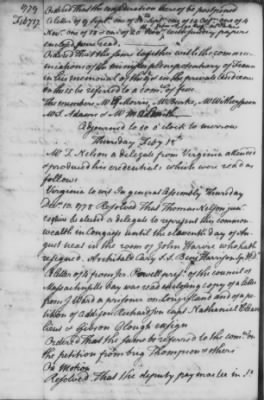 Ordered That the consideration thereof be postponed
A letter of 9 Sept. one of
Nov. one of 15 & one of 20 Nov. with sundry papers
enclosed were read.
Ordered That the same together with the commu-
nications of the minister plenipotentiary of France
in his memorial of the and in the private audience
be referred to a comee. of five
The members Mr G Morris, Mr Burke, Mr Witherspoon
Mr S Adams & Mr M Smith
Adjourned to 10 o'clock to morrow
Thursday Feby 18
Mr T. Nelson a delegate from Virginia attended
& produced his credentials which were read as
follows
Virginia to wit In general Assembly Thursday
Decr. 10. 1778 Resolved That Thomas Nelson jun
esquire be elected a delegate to represent this common
wealth in Congress until the eleventh day of Au-
gust next in the room of John Harvie who hath
resigned. Archibald Cary S.S. Benj Harrison Sp. H.D.
A letter of 8 from Jer. Powell presdt. of the council of
Massachusetts bay was read enclosing copy of a letter
from J Ward a prisoner on long island and of a pe-
tition of Addison Richardson capt Nathaniel
lieut & Gibson Clough ensign
Ordered that the same be referred to the comee. on
the petition from brig Thompson & others
On Motion
Resolved That the deputy pay master in So